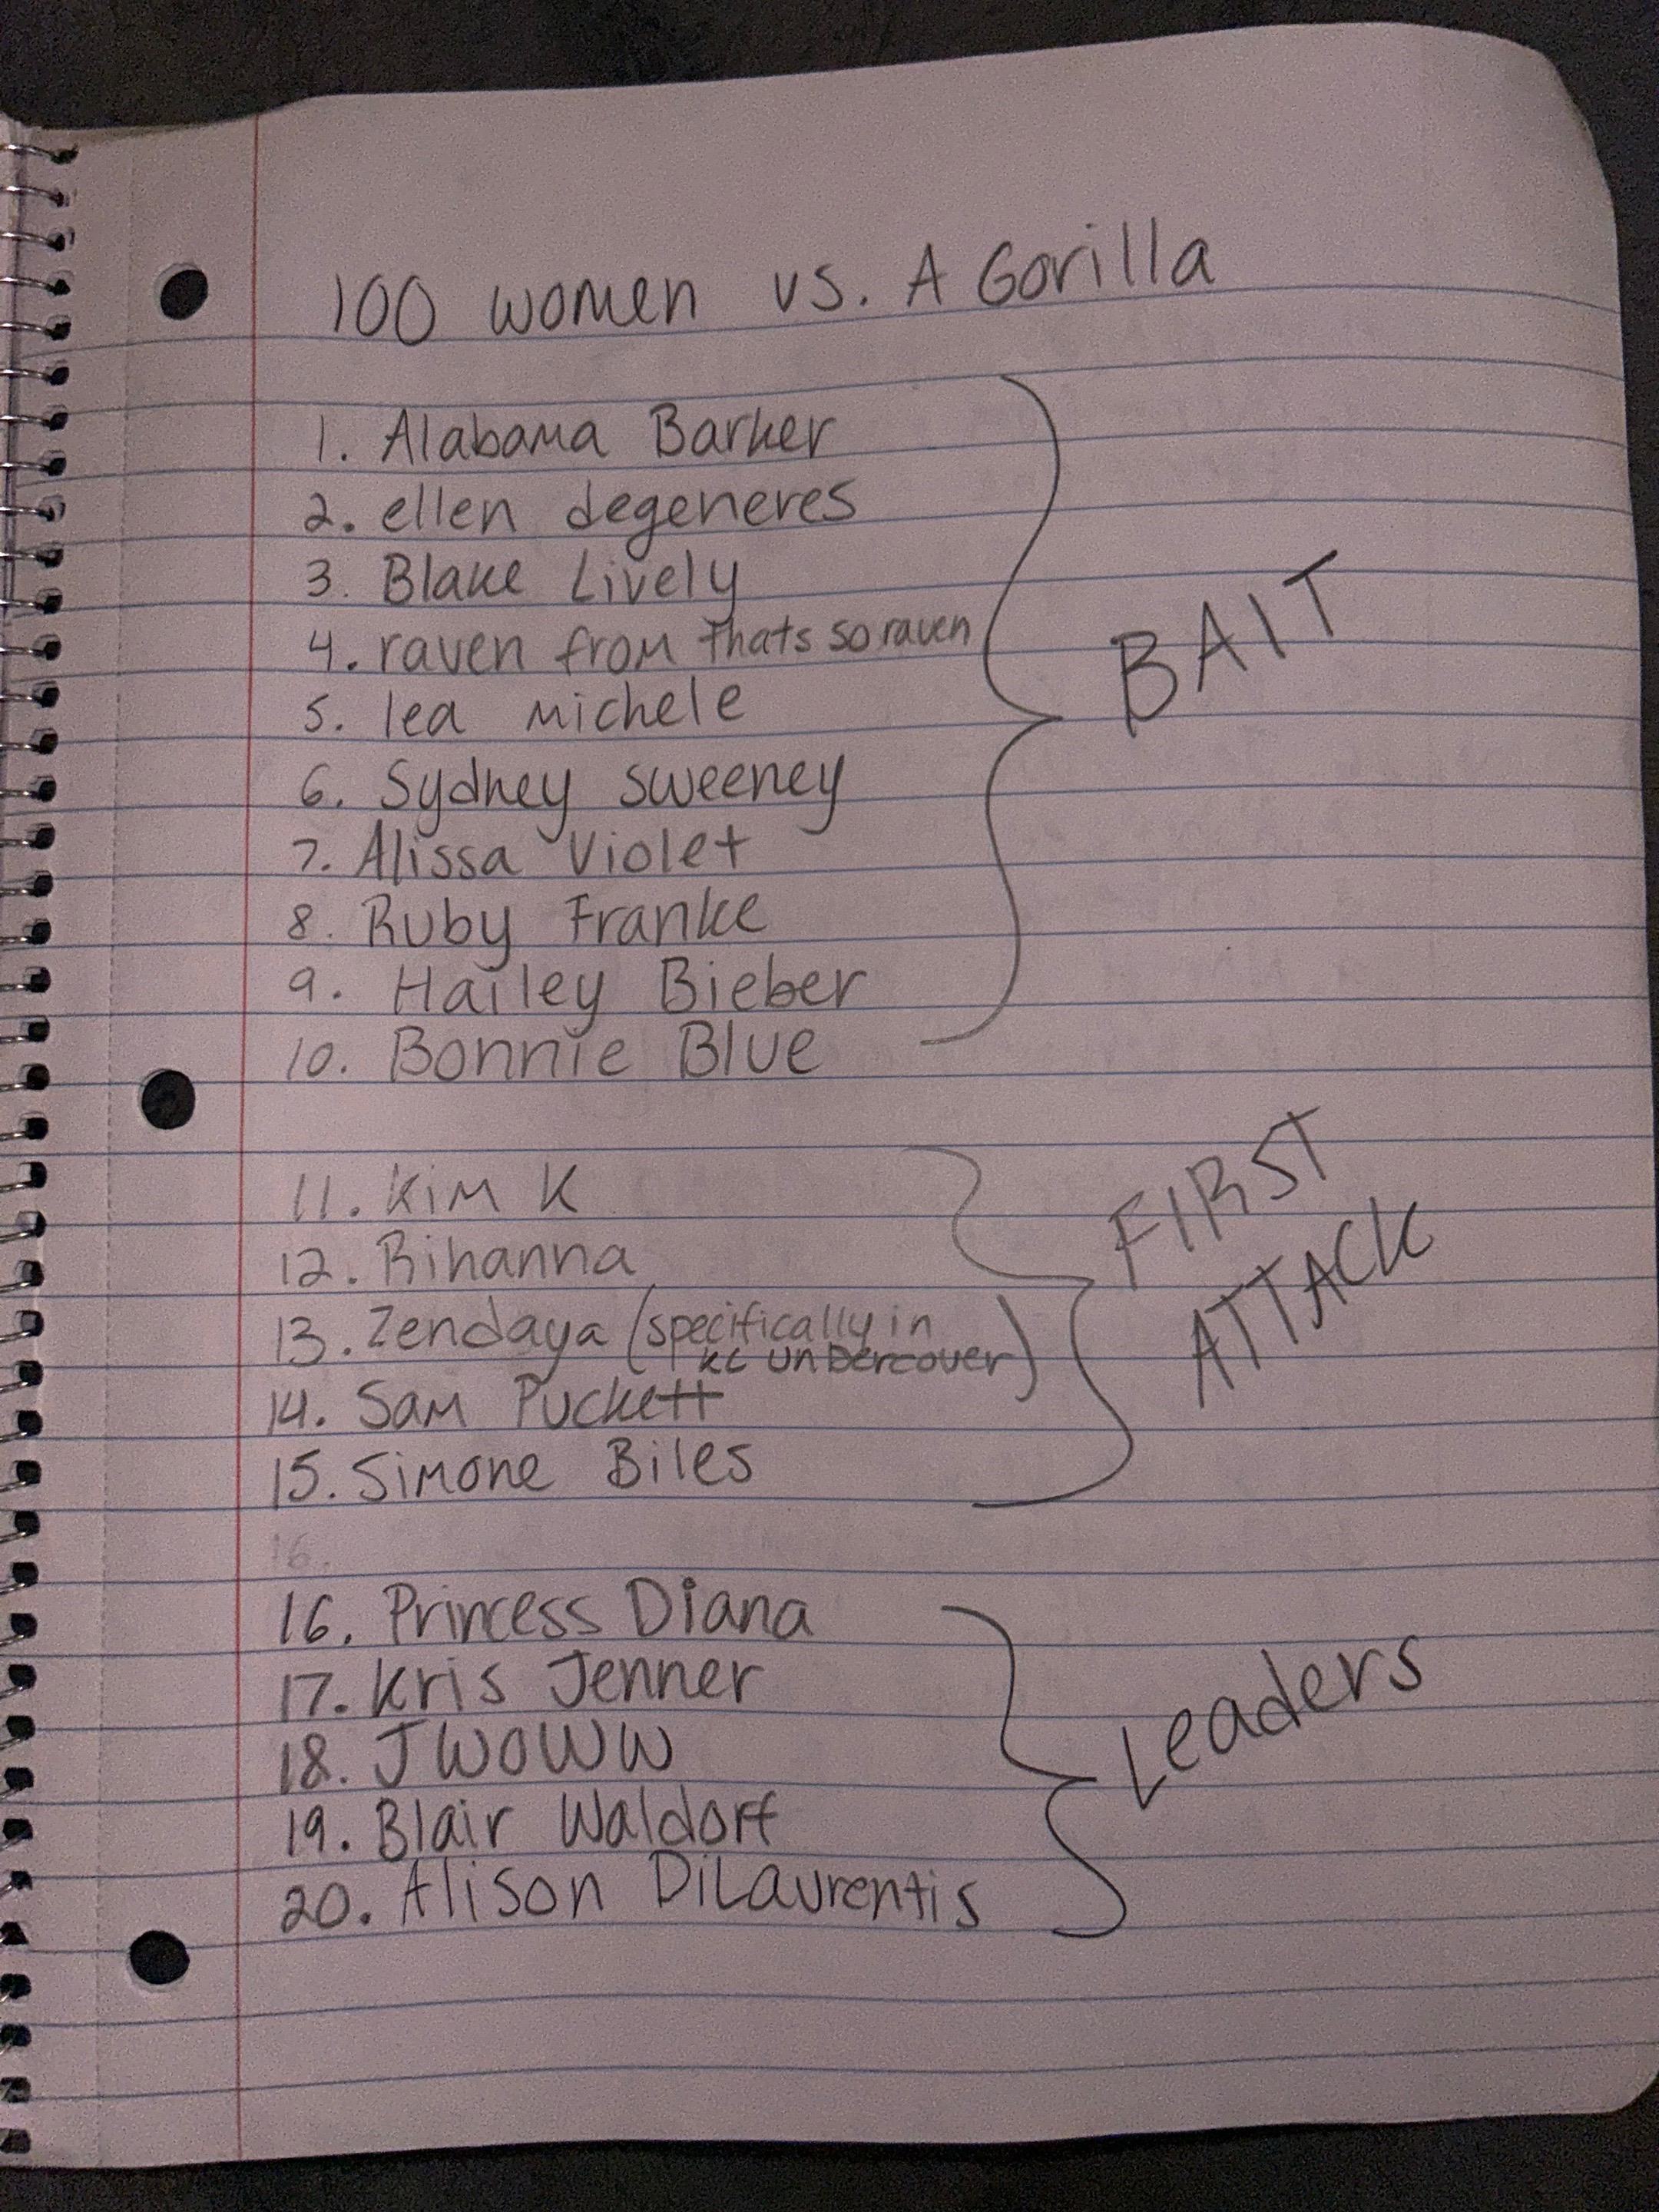 100 women vs. A Gorilla
1. Alabama Barker
2. ellen degeneres
3. Blake Lively
4. raven from thats so raven
5. lea michele
6. Sydney sweeney
7. Alissa Violet
8. Ruby Franke
9. Hailey Bieber
10. Bonnie Blue
BAIT
11. Kim K
12. Rihanna
13. Zendaya (specifically in
KC UnDercover)
14. Sam Puckett
15. Simone Biles
FIRST
ATTACK
16.
16. Princess Diana
17. Kris Jenner
18. JWOWW
19. Blair Waldorf
20. Alison DiLaurentis
Leaders